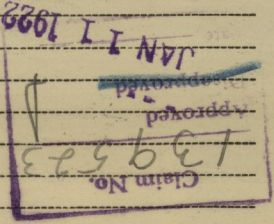 Claim No.
139523
Approved
Disapproved
JAN 11 1922